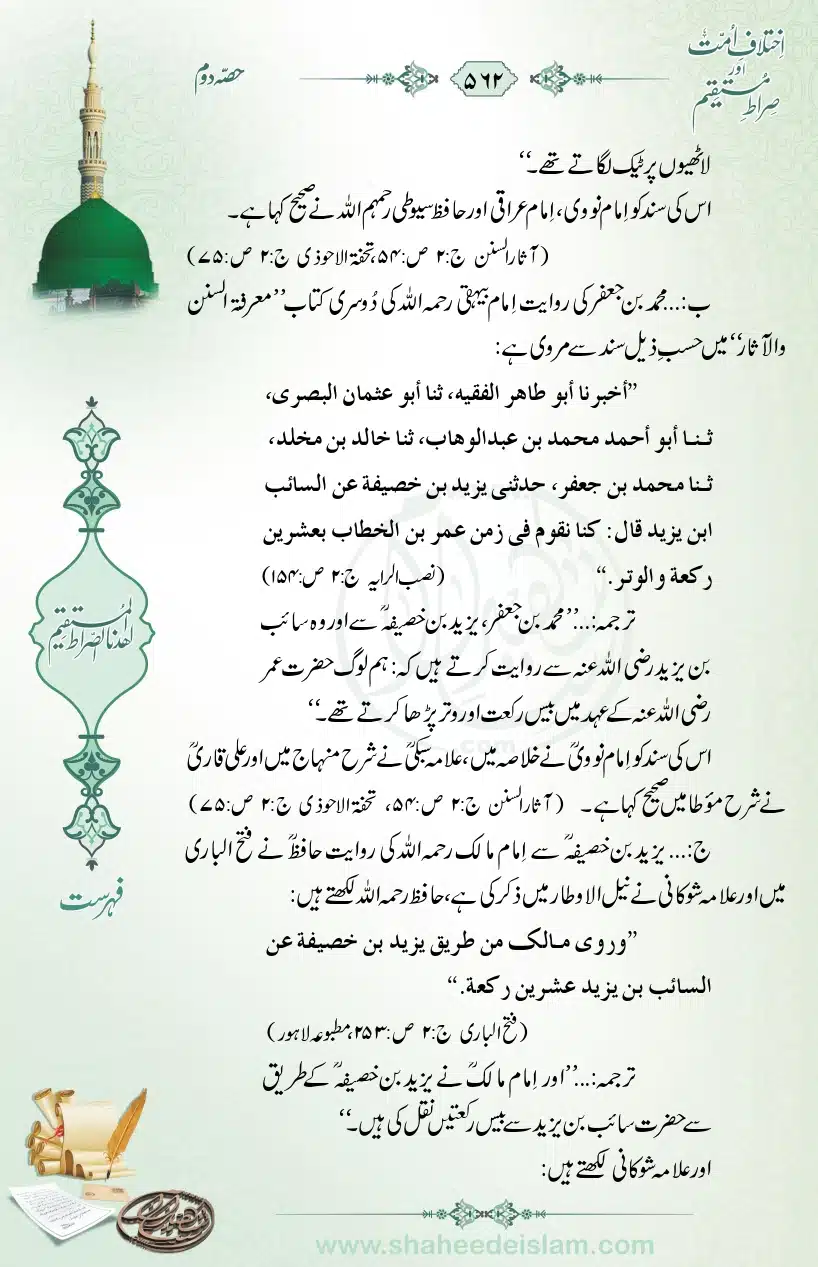 اِختلافِ اُمّت
اور
صِراطِ مُستقیم
۵۶۲
حصّہ دوم
لاٹھیوں پر ٹیک لگاتے تھے۔‘‘
اس کی سند کو اِمام نووی، اِمام عراقی اور حافظ سیوطی رحمہم اللہ نے صحیح کہا ہے۔
(آثار السنن ج:۲ ص:۵۴، تحفۃ الاحوذی ج:۲ ص:۷۵)
ب:... محمد بن جعفر کی روایت اِمام بیہقی رحمہ اللہ کی دُوسری کتاب ’’معرفۃ السنن
والآثار‘‘ میں حسبِ ذیل سند سے مروی ہے:
’’أخبرنا أبو طاهر الفقیه، ثنا أبو عثمان البصری،
ثنا أبو أحمد محمد بن عبدالوهاب، ثنا خالد بن مخلد،
ثنا محمد بن جعفر، حدثنی یزید بن خصیفة عن السائب
ابن یزید قال: کنا نقوم فی زمن عمر بن الخطاب بعشرین
رکعة والوتر.‘‘ (نصب الرایہ ج:۲ ص:۱۵۴)
ترجمہ:...’’محمد بن جعفر، یزید بن خصیفہؒ سے اور وہ سائب
بن یزید رضی اللہ عنہ سے روایت کرتے ہیں کہ: ہم لوگ حضرت عمر
رضی اللہ عنہ کے عہد میں بیس رکعت اور وتر پڑھا کرتے تھے۔‘‘
اس کی سند کو اِمام نوویؒ نے خلاصہ میں، علامہ سبکیؒ نے شرح منہاج میں اور علی قاریؒ
نے شرح مؤطا میں صحیح کہا ہے۔ (آثار السنن ج:۲ ص:۵۴، تحفۃ الاحوذی ج:۲ ص:۷۵)
ج:... یزید بن خصیفہؒ سے اِمام مالک رحمہ اللہ کی روایت حافظؒ نے فتح الباری
میں اور علامہ شوکانی نے نیل الاوطار میں ذکر کی ہے، حافظ رحمہ اللہ لکھتے ہیں:
’’وروی مالک من طریق یزید بن خصیفة عن
السائب بن یزید عشرین رکعة.‘‘
(فتح الباری ج:۲ ص:۲۵۳، مطبوعہ لاہور)
ترجمہ:...’’اور اِمام مالکؒ نے یزید بن خصیفہؒ کے طریق
سے حضرت سائب بن یزید سے بیس رکعتیں نقل کی ہیں۔‘‘
اور علامہ شوکانی لکھتے ہیں:
اهدنا الصراط المستقیم
فہرست
www.shaheedeislam.com